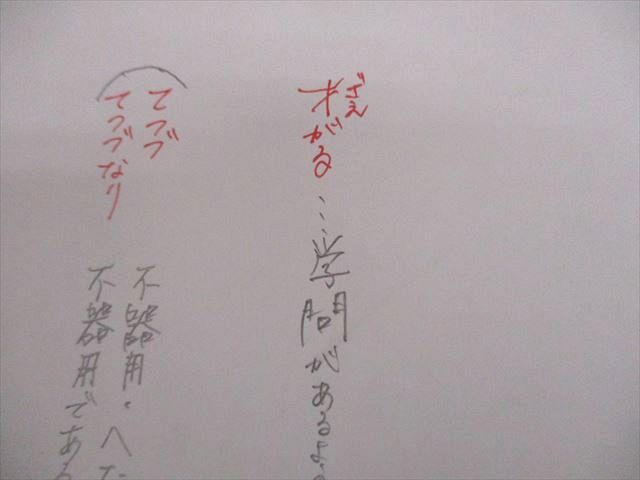 才がる…学問があるよ
ざえ
てづづ 不器用・へた
てづづなり 不器用である